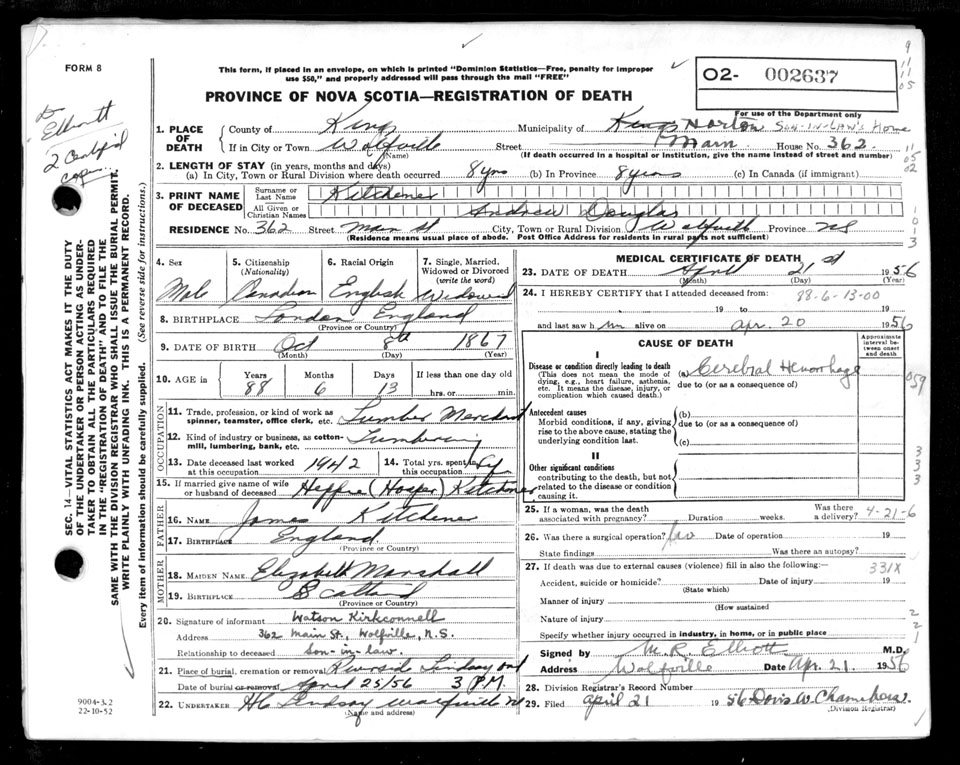 FORM 8
This form, if placed in an envelope, on which is printed "Dominion Statistics—Free, penalty for improper
use $50," and properly addressed will pass through the mail "FREE"
PROVINCE OF NOVA SCOTIA—REGISTRATION OF DEATH
O2- 002637
For use of the Department only
Elliott
2 Certif'd
copies
1. PLACE OF DEATH
County of Kings
Municipality of Kings Horton Son-in-Law's Home
If in City or Town Wolfville (Name) Street Main House No. 362
(If death occurred in a hospital or institution, give the name instead of street and number)
2. LENGTH OF STAY (in years, months and days)
(a) In City, Town or Rural Division where death occurred 8 yrs (b) In Province 8 years (c) In Canada (if immigrant)
3. PRINT NAME OF DECEASED
Surname or Last Name Kitchener
All Given or Christian Names Andrew Douglas
RESIDENCE No. 362 Street Main St City, Town or Rural Division Wolfville Province NS
(Residence means usual place of abode. Post Office Address for residents in rural parts not sufficient)
4. Sex Male
5. Citizenship (Nationality) Canadian
6. Racial Origin English
7. Single, Married, Widowed or Divorced (write the word) Widowed
8. BIRTHPLACE London England
(Province or Country)
9. DATE OF BIRTH Oct 8th 1867
(Month) (Day) (Year)
10. AGE in Years 88 Months 6 Days 13 If less than one day old hrs. or min.
OCCUPATION
11. Trade, profession, or kind of work as spinner, teamster, office clerk, etc. Lumber Merchant
12. Kind of industry or business, as cotton-mill, lumbering, bank, etc. Lumbering
13. Date deceased last worked at this occupation 1942
14. Total yrs. spent in this occupation
15. If married give name of wife or husband of deceased (Hosper) Kitchener
FATHER
16. NAME James Kitchener
17. BIRTHPLACE England
(Province or Country)
MOTHER
18. MAIDEN NAME Elizabeth Marshall
19. BIRTHPLACE Scotland
(Province or Country)
20. Signature of informant Watson Kirkconnell
Address 362 Main St., Wolfville, N.S.
Relationship to deceased Son-in-law.
21. Place of burial, cremation or removal Riverside Lindsay Ont
Date of burial or removal April 25/56 3 P.M.
22. UNDERTAKER HC Lindsay Wolfville N
(Name and address)
MEDICAL CERTIFICATE OF DEATH
23. DATE OF DEATH April 21st 1956
(Month) (Day) (Year)
24. I HEREBY CERTIFY that I attended deceased from: 88-6-13-00
19 to 19
and last saw him alive on Apr. 20 1956
CAUSE OF DEATH
Approximate interval between onset and death
I
Disease or condition directly leading to death
(This does not mean the mode of dying, e.g., heart failure, asthenia, etc. It means the disease, injury, or complication which caused death.)
(a) Cerebral Hemorrhage
due to (or as a consequence of)
Antecedent causes
Morbid conditions, if any, giving rise to the above cause, stating the underlying condition last.
(b)
due to (or as a consequence of)
(c)
II
Other significant conditions
contributing to the death, but not related to the disease or condition causing it.
25. If a woman, was the death associated with pregnancy? Duration weeks. Was there a delivery? 4-21-6
26. Was there a surgical operation? No Date of operation 19
State findings Was there an autopsy?
27. If death was due to external causes (violence) fill in also the following:— 331X
Accident, suicide or homicide? Date of injury 19
(State which)
Manner of injury
(How sustained
Nature of injury
Specify whether injury occurred in industry, in home, or in public place
Signed by M. R. Elliott M.D.
Address Wolfville Date Apr. 21 1956
28. Division Registrar's Record Number
29. Filed April 21 1956 Doris W. Chambers.
(Division Registrar)
SEC. 14—VITAL STATISTICS ACT MAKES IT THE DUTY
OF THE UNDERTAKER OR PERSON ACTING AS UNDER-
TAKER TO OBTAIN ALL THE PARTICULARS REQUIRED
IN THE "REGISTRATION OF DEATH" AND TO FILE THE
SAME WITH THE DIVISION REGISTRAR WHO SHALL ISSUE THE BURIAL PERMIT.
WRITE PLAINLY WITH UNFADING INK. THIS IS A PERMANENT RECORD.
Every item of information should be carefully supplied. (See reverse side for instructions.)
9004-3.2
22-10-52
9
11
11
05
11
05
02
1
0
1
3
059
3
3
3
2
2
1